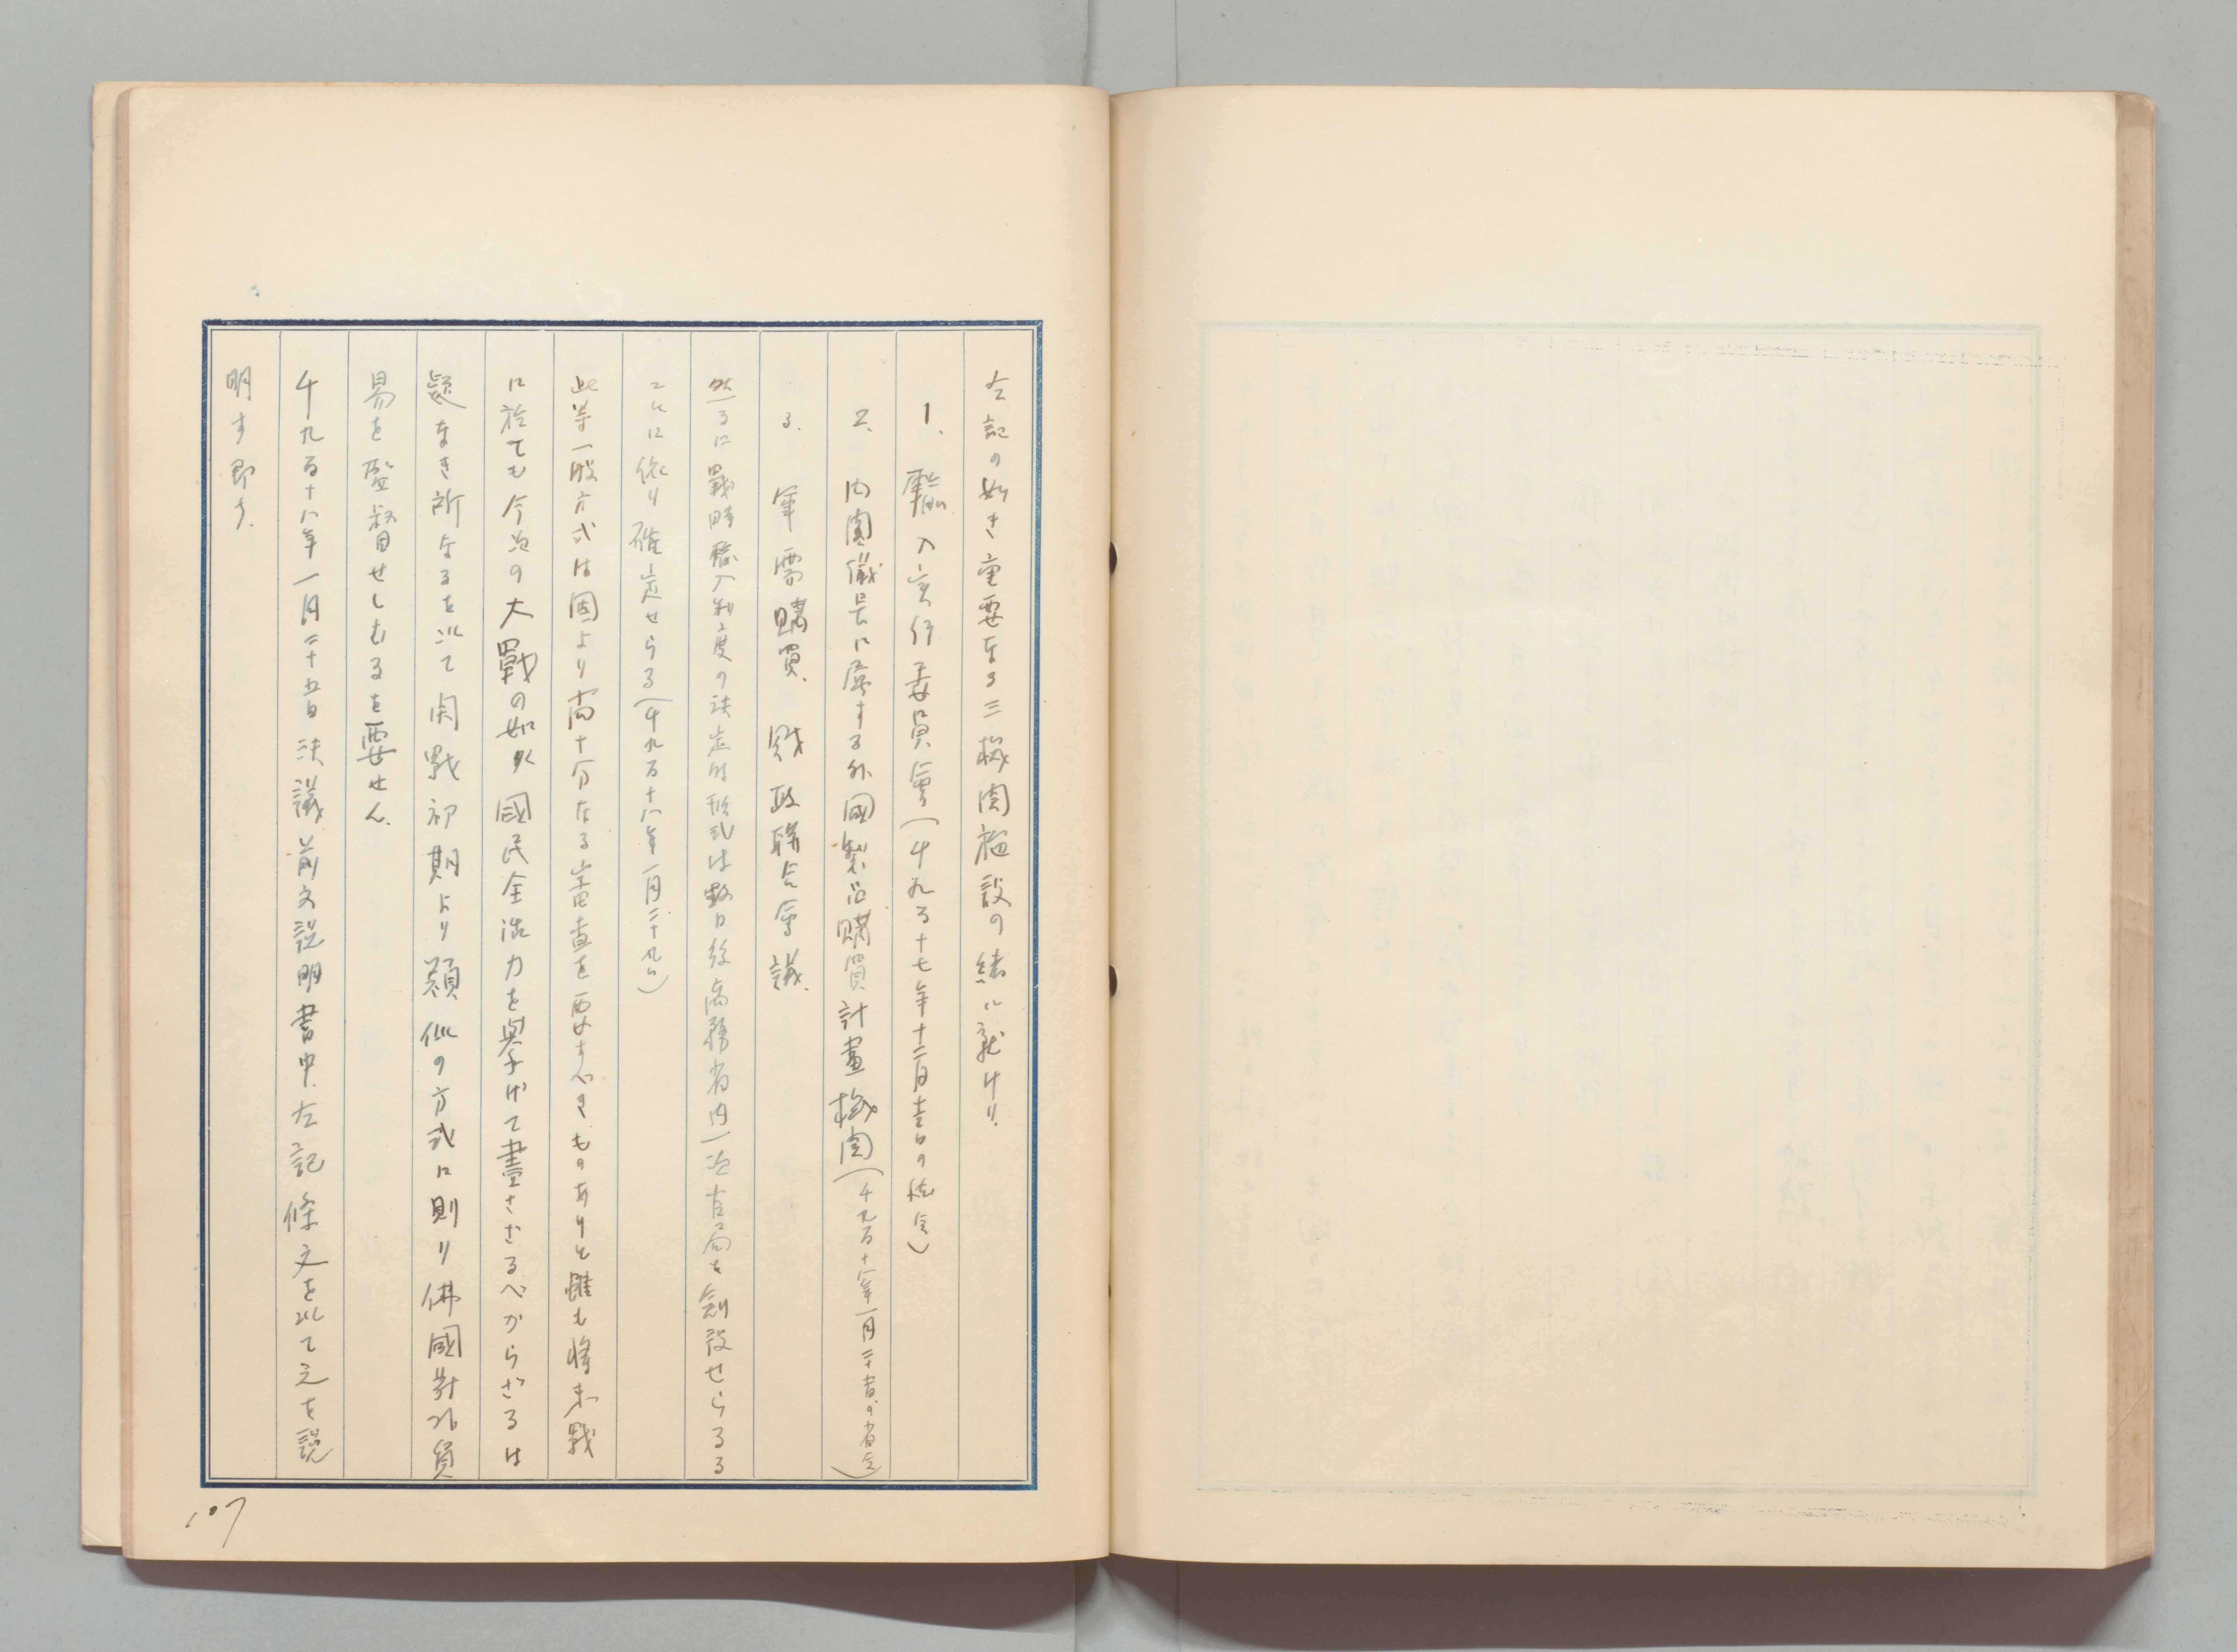 左記の如き重要なる三機関施設の緒に就けり.
1. 輸入実行委員會(千九百十七年十二月十五日の法令)
2. 内國議長に属する外國製品購買計畫機関(千九百十八年一月二十五日の省令)
3. 軍需購買. 財政聯合會議.
然るに戰時輸入制度の法定的形式は数日後商務省内に一次官局を創設せらるる
ことに依り確定せらる(千九百十八年一月二十九日)
此等一般方式は固より尚十分なる審査を要すべきものありと雖も將来戰
に於ても今次の大戰の如く國民全活力を擧げて盡さざるべからざるは
疑なき所なるを以て開戰初期より類似の方式に則り佛國対外貿
易を監督せしむるを要せん.
千九百十八年一月二十五日法議前文説明書中左記條文を以て之を説
明す即ち.
107